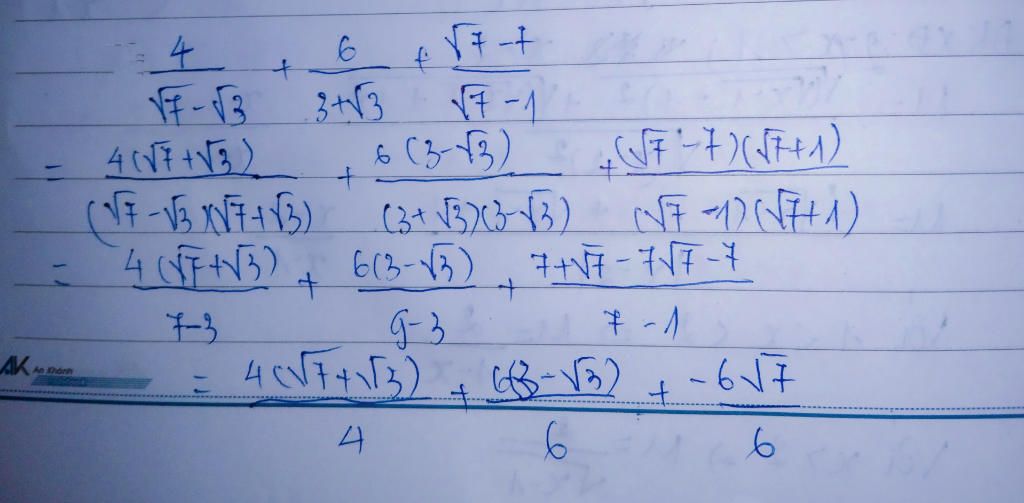 = 4/(√7-√3) + 6/(3+√3) + (√7-7)/(√7-1)
= 4(√7+√3)/((√7-√3)(√7+√3)) + 6(3-√3)/((3+√3)(3-√3)) + (√7-7)(√7+1)/((√7-1)(√7+1))
= 4(√7+√3)/(7-3) + 6(3-√3)/(9-3) + (7+√7-7√7-7)/(7-1)
AK An Khánh
= 4(√7+√3)/4 + 6(3-√3)/6 + -6√7/6